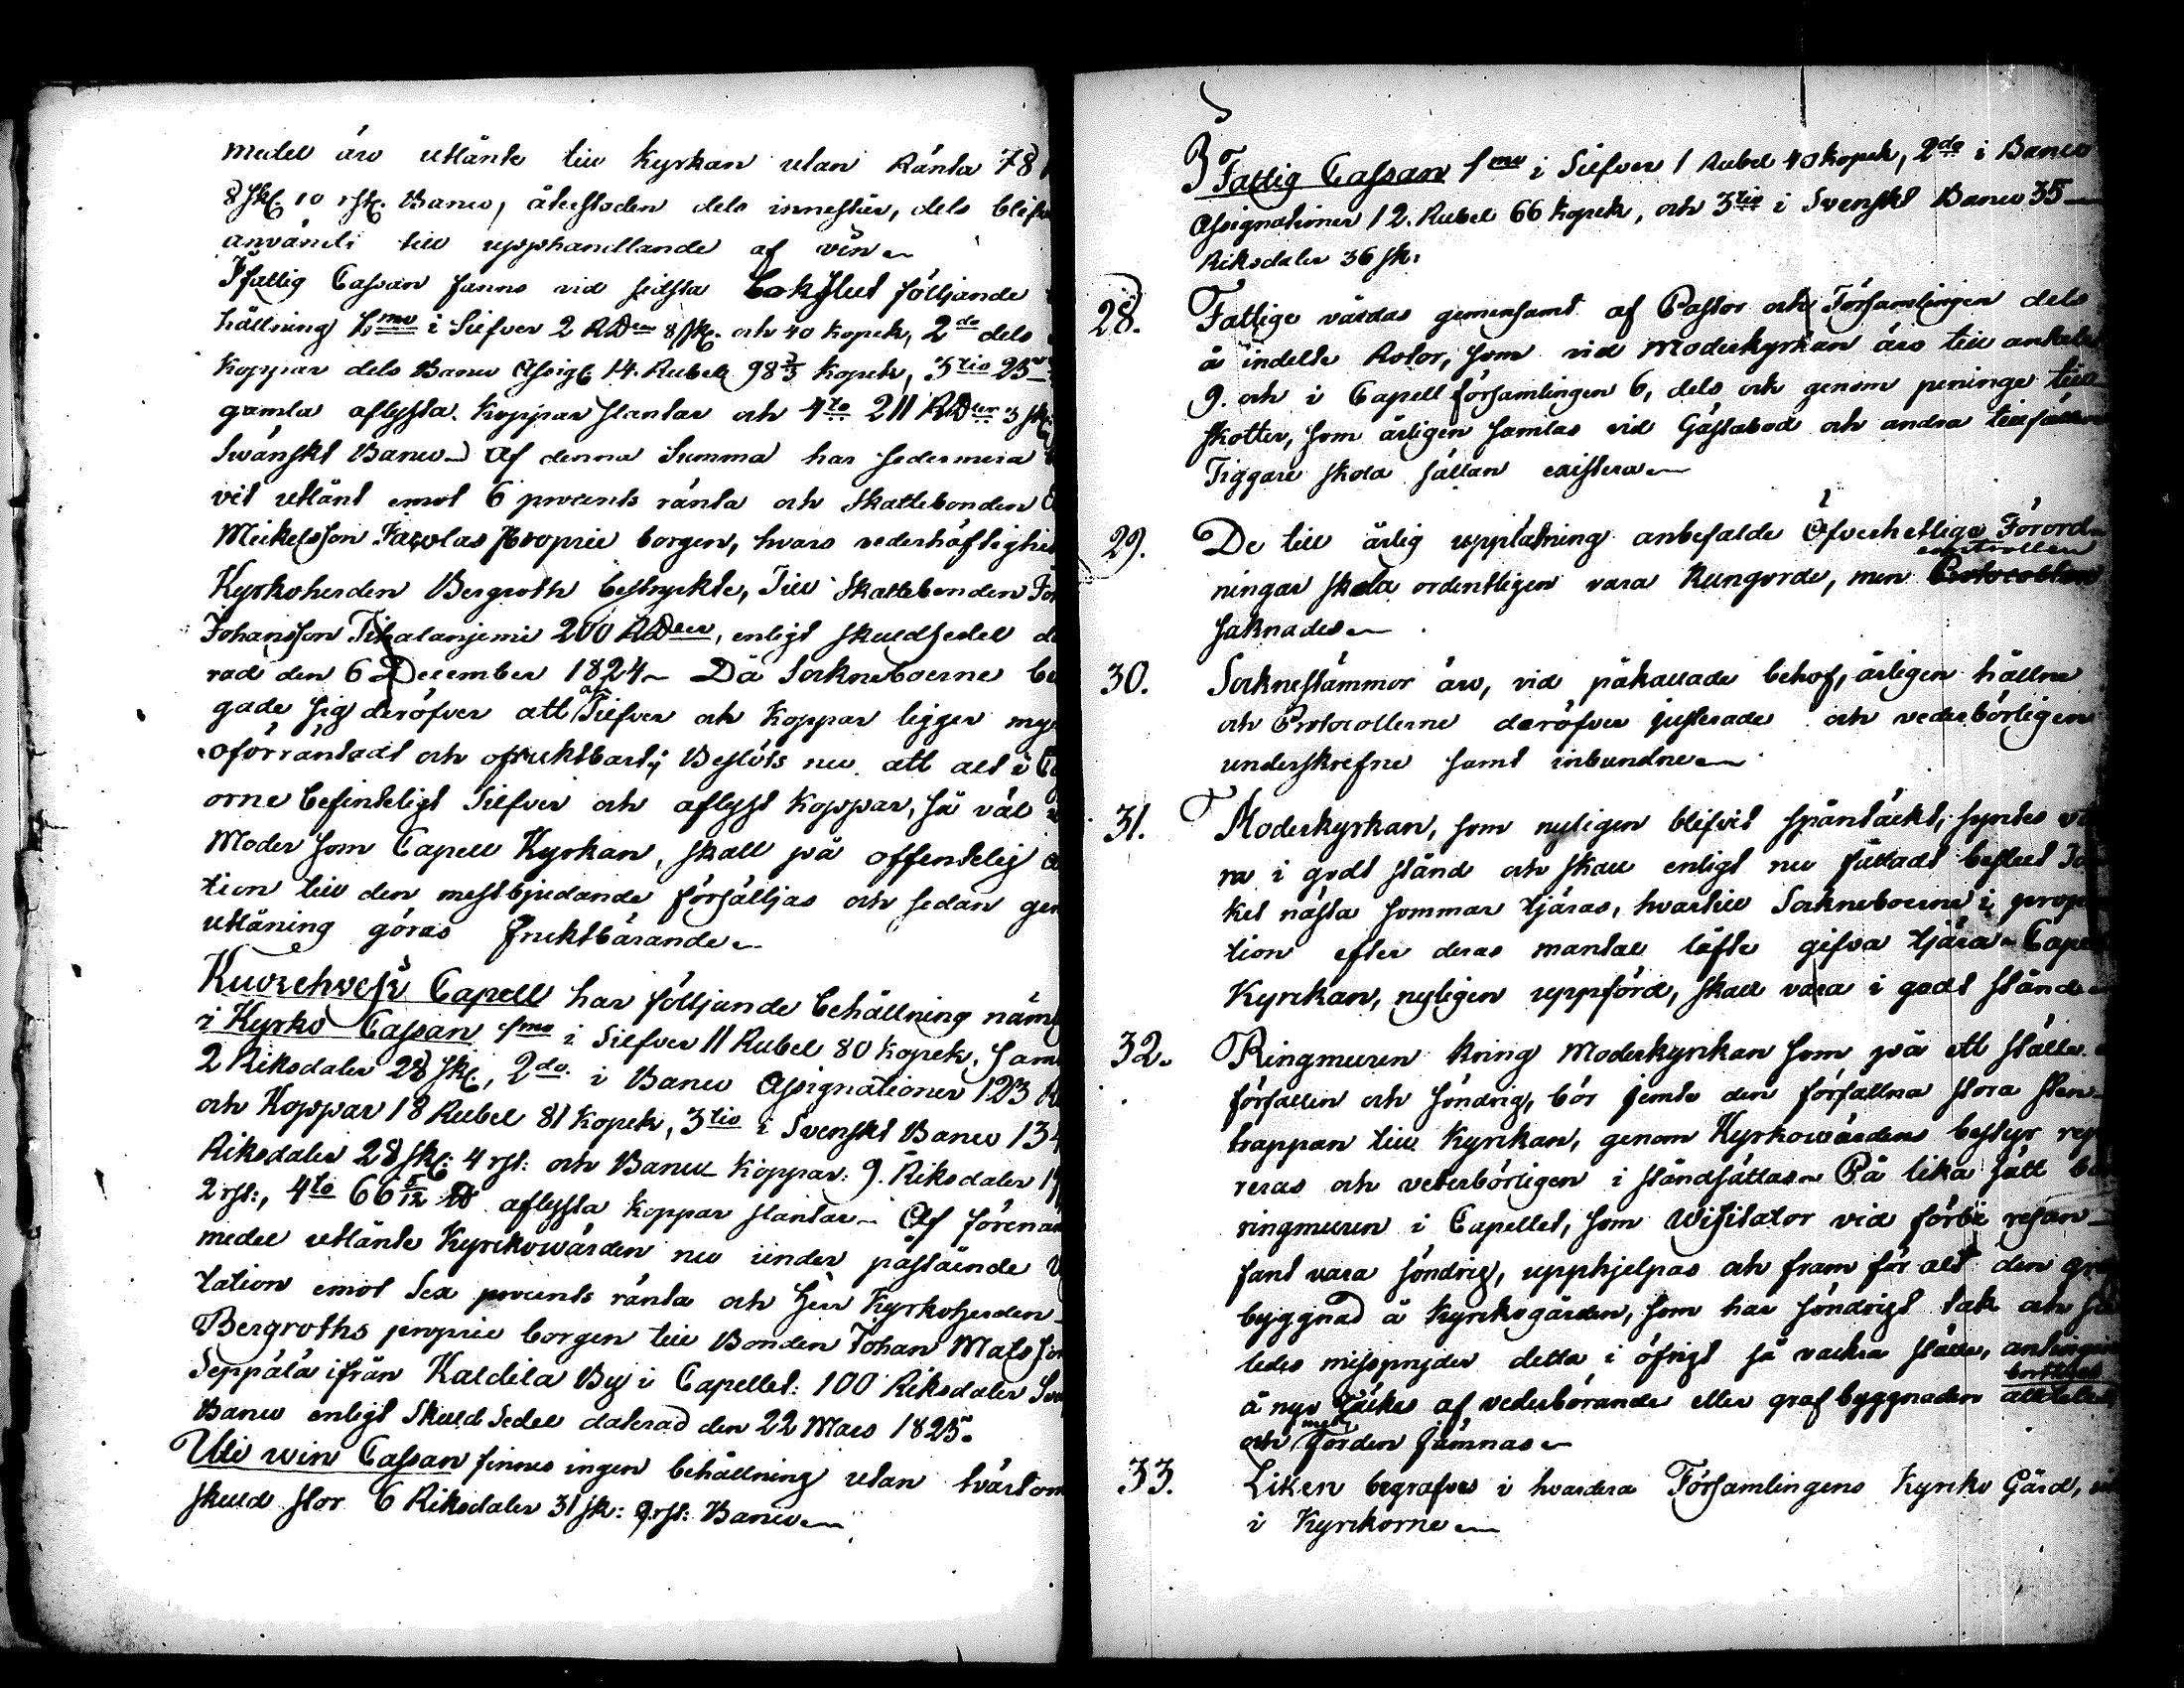 medel äro utlänte till Kyrkan utan Ränta 78
8 sk. 10 rst. Banco, återstoden dels innestår, dels blifv
använde till upphandlande af vin
I fattig Cassan fanns vid sidsta bokslut följjande
hällning 1mo i Silfver 2 RDlr 8 sk. och 40 Kopek, 2do dels
Koppar dels Banco Assig. 14. Rubel 98 2/3 Kopek, 3tio 25
gamla aflysta Koppar slantar och 4to 211 RDlr 3 sk:
Swänskt Banco. Af denna Summa har sedermera
vit utlänt emot 6 procents ränta och Skattebonden
Meikelsson proprie borgen, hvars vederhäftighet
Kyrkoherden Bergroth bestyrkte, Till Skattebonden
Johansson 200 RDlr, enligt skuldsedel da
rad den 6 December 1824 Då Sockneboerne be
gade sig deröfver att af Silfver och Koppar ligger my
oförräntadt och ofruktbart; Beslöts nu att alt i C
orne befinteligt Silfver och aflyst Koppar, så väl
Moder som Capell Kyrkan, skall på offentelig a
tion till den mestbjudande försälljas och sedan gen
utlåning göras fruktbärande
Kuorehvesi Capell har följjande behållning näml
i Kyrko Cassan 1mo i Silfver 11 Rubel 80 Kopek, sam
2 Riksdaler 28 sk., 2do. i Banco Assignationer 123 R
och Koppar 18 Rubel 81 Kopek, 3tio i Svenskt Banco 134
Riksdaler 28 sk: 4 rst: och Banco Koppar: 9. Riksdaler 19
2 rst:, 4to 66 5/12 aflysta Koppar slantar. Af förenam
medel utlänte Kyrkowärden nu under påstående V
tation emot Sex procents ränta och Herr Kyrkoherden
Bergroths proprie borgen till Bonden Johan Mats son
Seppälä ifrån Kaldila By i Capellet: 100 Riksdaler Sve
Banco enligt Skuld Sedel daterad den 22 Mars 1825.
Uti win Cassan finnes ingen behållning utan tvärtom
skuld stor 6 Riksdaler 31 sk: 9 rst: Banco
I Fattig Cassan 1mo i Silfver 1 Rubel 40 Kopek, 2do i Banco
Assignationer 12. Rubel 66 Kopek, och 3tio i Svenskt Banco 35
Riksdaler 36 sk:
28. Fattige vårdas gemensamt af Pastor och Församlingen dels
å indelte Rotor, som vid Moderkyrkan äro till antalet
9. och i Capell församlingen 6, dels ock genom peninge till
skotter, som årligen samlas vid Gästabod och andra tillfällen
Tiggare skola sällan existera
29. De till årlig uppläsning anbefalde Öfverhetlige Förord
ningar skola ordentligen vara Kungorde, men controllen
saknades
30. Socknestämmor äro, vid påkallade behof, årligen hållne
och Protocollerne deröfver justerade och vederbörligen
underskrefne samt inbundne
31. Moderkyrkan, som nyligen blifvit spåntäckt, syntes va
ra i godt stånd och skall enligt nu fattadt beslut Ta
ket nästa sommar tjäras, hvartill Sockneboerne i propo
tion efter deras mantal löfte gifva tjära Capell
Kyrckan, nyligen uppförd, skall vara i godt stånd
32. Ringmuren kring Moderkyrckan som på ett ställe
förfallen och söndrig, bör jemte den förfallna stora sten
trappan till Kyrckan, genom Kyrkowärdens bestyr rep
reras och vederbörligen i ståndsättas På lika sätt bö
ringmuren i Capellet, som Wisitator vid förbi resan
fant vara söndrig, upphjelpas och fram för alt den graf
byggnad å Kyrckogården, som har söndrigt tak och så
ledes misspryder detta i öfrigt så vackra ställe, antingen
å nyo täckes af vederbörande eller graf byggnaden alldeles borttagas
och med Jorden jämnas
33. Liken begrafves i hvardera Församlingens Kyrcko Gård,
i Kyrckorne